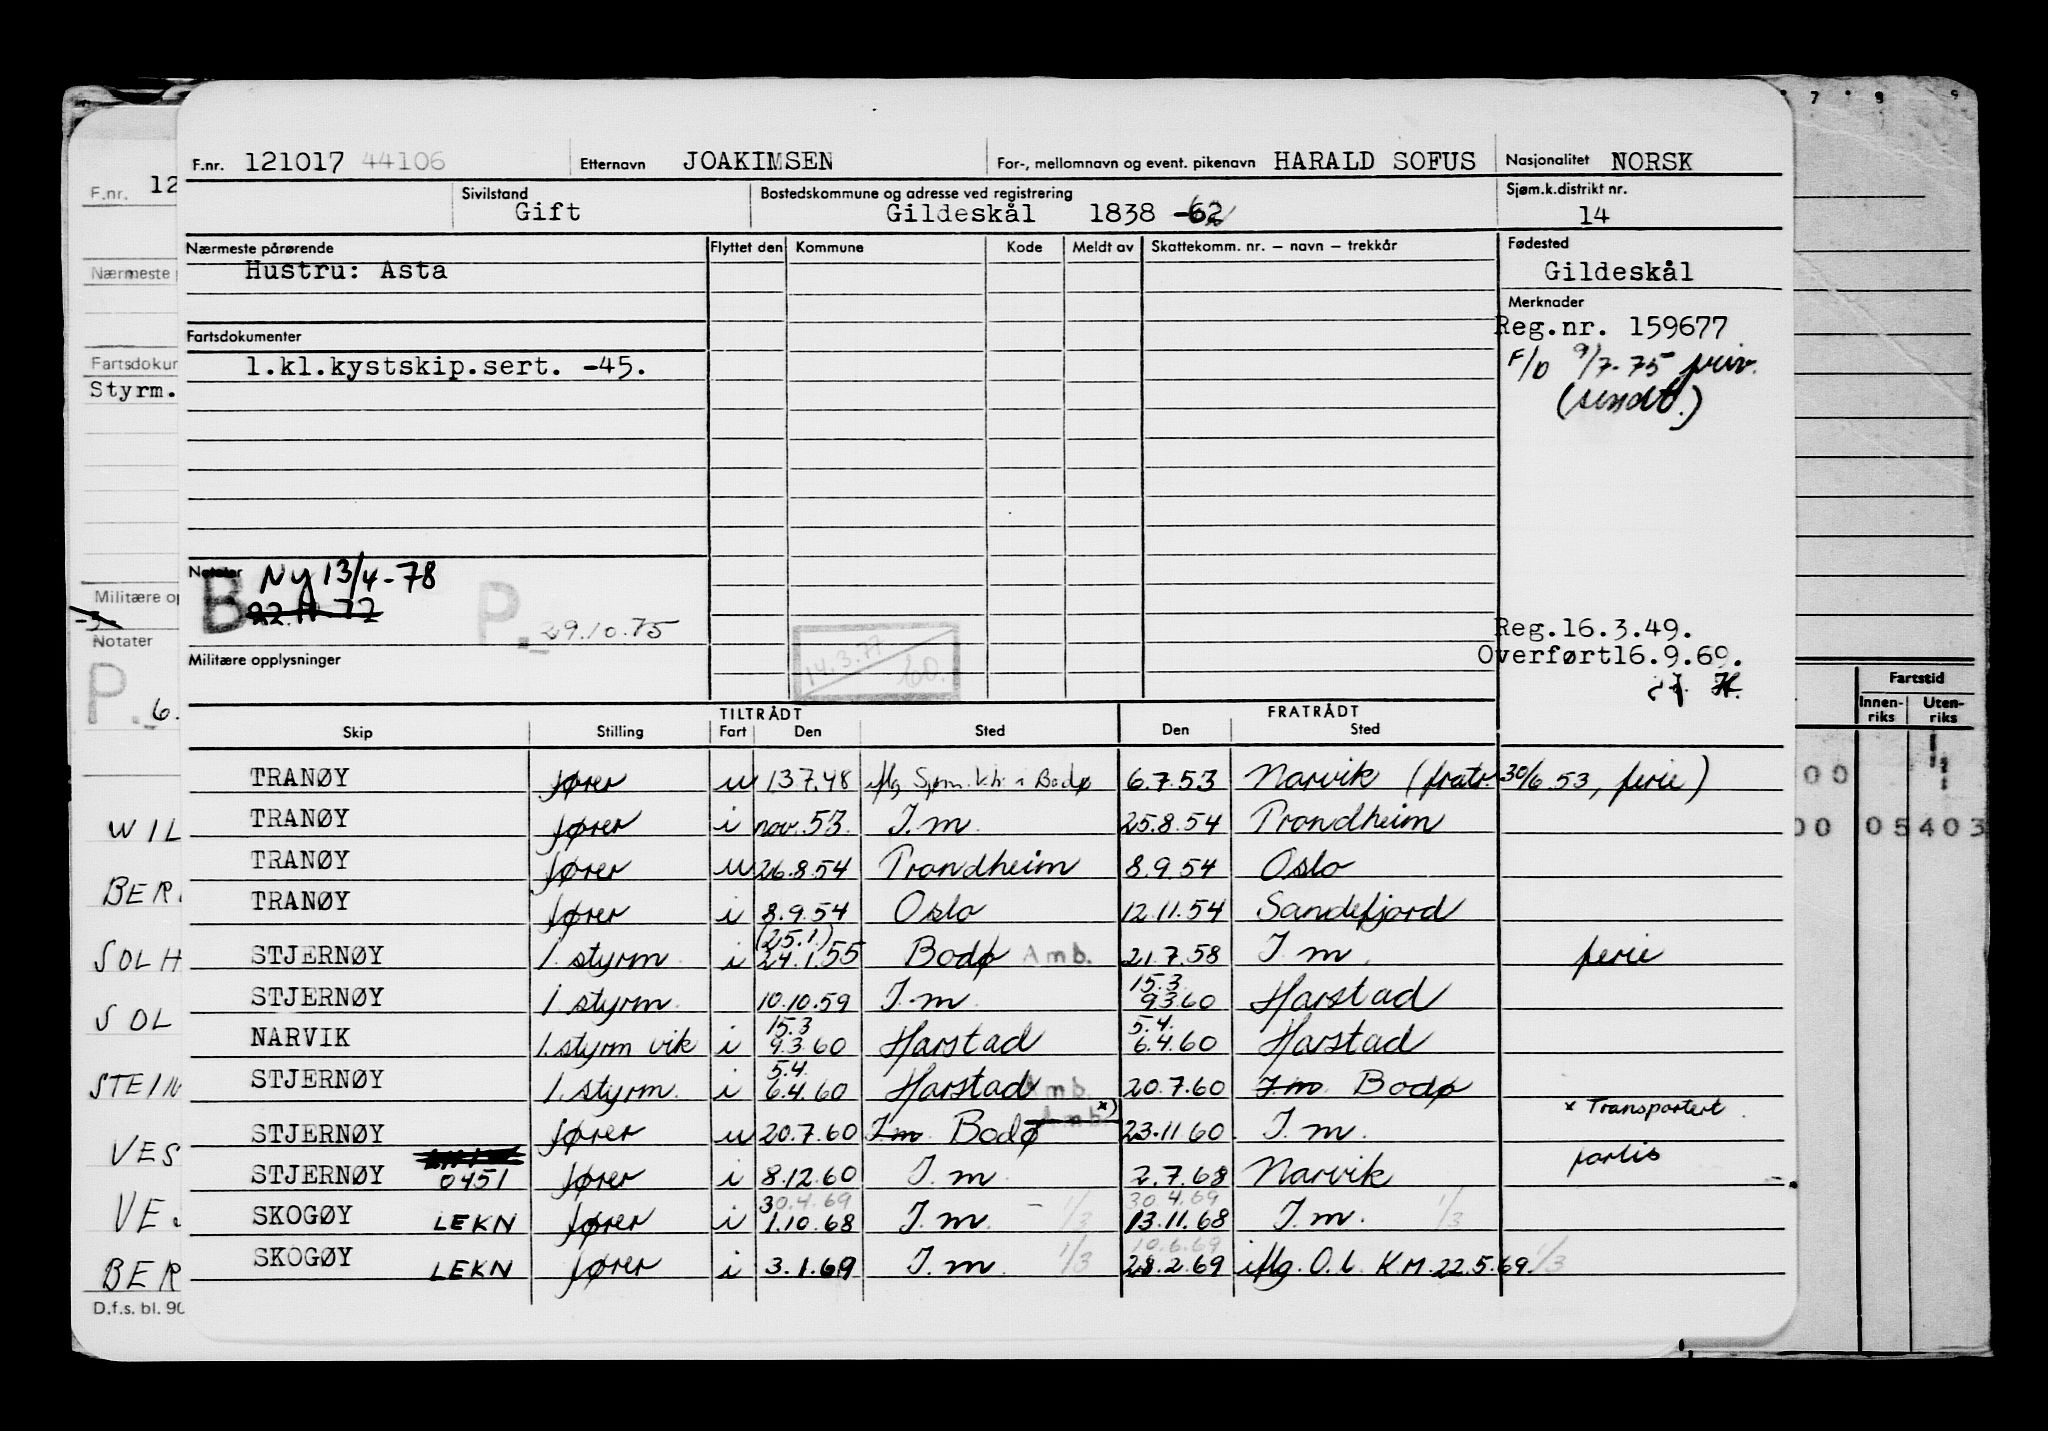 F.nr. 121017 44106 Etternavn JOAKIMSEN For-, mellomnavn og event. pikenavn HARALD SOFUS Nasjonalitet NORSK
Sivilstand Gift Bostedskommune og adresse ved registrering Gildeskål 1838 -62 Sjøm.k.distrikt nr. 14
Nærmeste pårørende Flyttet den Kommune Kode Meldt av Skattekomm. nr. — navn — trekkår Fødested
Hustru: Asta Gildeskål
Merknader
Reg.nr. 159677
Fartsdokumenter
1.kl.kystskip.sert. -45. F/O 9/7-75 priv.
(sendt.)
Notater Ny 13/4-78
B P. 29.10.75
14.3.77 60.
Reg.16.3.49.
Militære opplysninger Overført16.9.69.
TILTRÅDT FRATRÅDT
Skip Stilling Fart Den Sted Den Sted
TRANØY fører u 13.7.48 iflg Sjøm.ktr. i Bodø 6.7.53 Narvik (fratr. 30/6.53, ferie)
TRANØY fører i nov.53. I.m. 25.8.54 Trondheim
TRANØY fører u 26.8.54 Trondheim 8.9.54 Oslo
TRANØY fører i 8.9.54 Oslo 12.11.54 Sandefjord
(25.1.)
STJERNØY 1. styrm. i 24.1.55 Bodø Amb. 21.7.58 I.m. ferie
15.3
STJERNØY 1 styrm. 10.10.59 I.m. 9.3.60 Harstad
15.3 5.4.
NARVIK 1. styrm vik i 9.3.60 Harstad 6.4.60 Harstad
5.4.
STJERNØY 1. styrm. i 6.4.60 Harstad Amb. 20.7.60 I.m. Bodø
x Transportert
STJERNØY fører u 20.7.60 I.m. Bodø Amb. x) 23.11.60. I.m.
partis
STJERNØY 0451 fører i 8.12.60 I.m. 2.7.68 Narvik
30.4.69 30.4.69
SKOGØY LEKN fører i 1.10.68 I.m. 1/3 13.11.68 I.m. 1/3
10.6.69
SKOGØY LEKN fører i 3.1.69 I.m. 1/3 28.2.69 iflg. O.l. K.M. 22.5.69. 1/3
F.nr. 12
Nærmeste
Fartsdokur
Styrm.
Militære op
-3-
Notater
P. 6.
WIL
BER
SOLH
SOL
STEIN
VES
VES
BER
D.f.s. bl. 90
7 8 9
Fartstid
Innen-riks Uten-riks
00
00 05 403